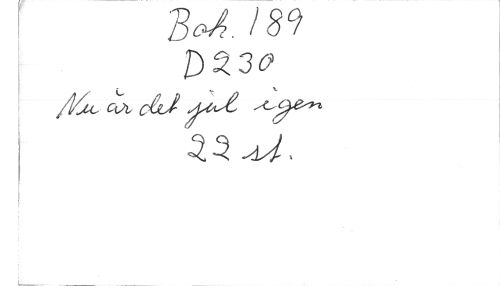 Bok. 189
D230
Nu är det jul igen
22 st.